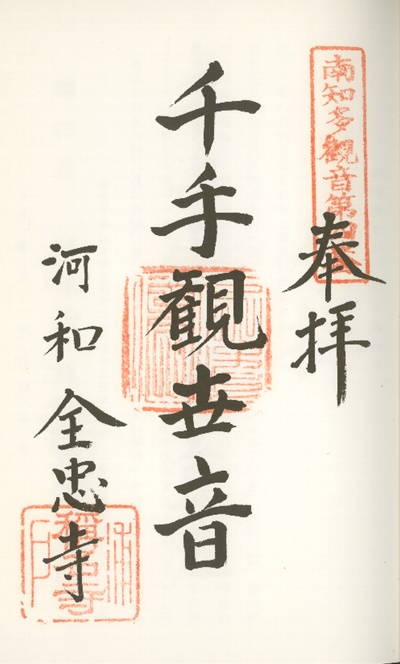 南知多觀音第
奉拜
千手觀世音
河和
全忠寺